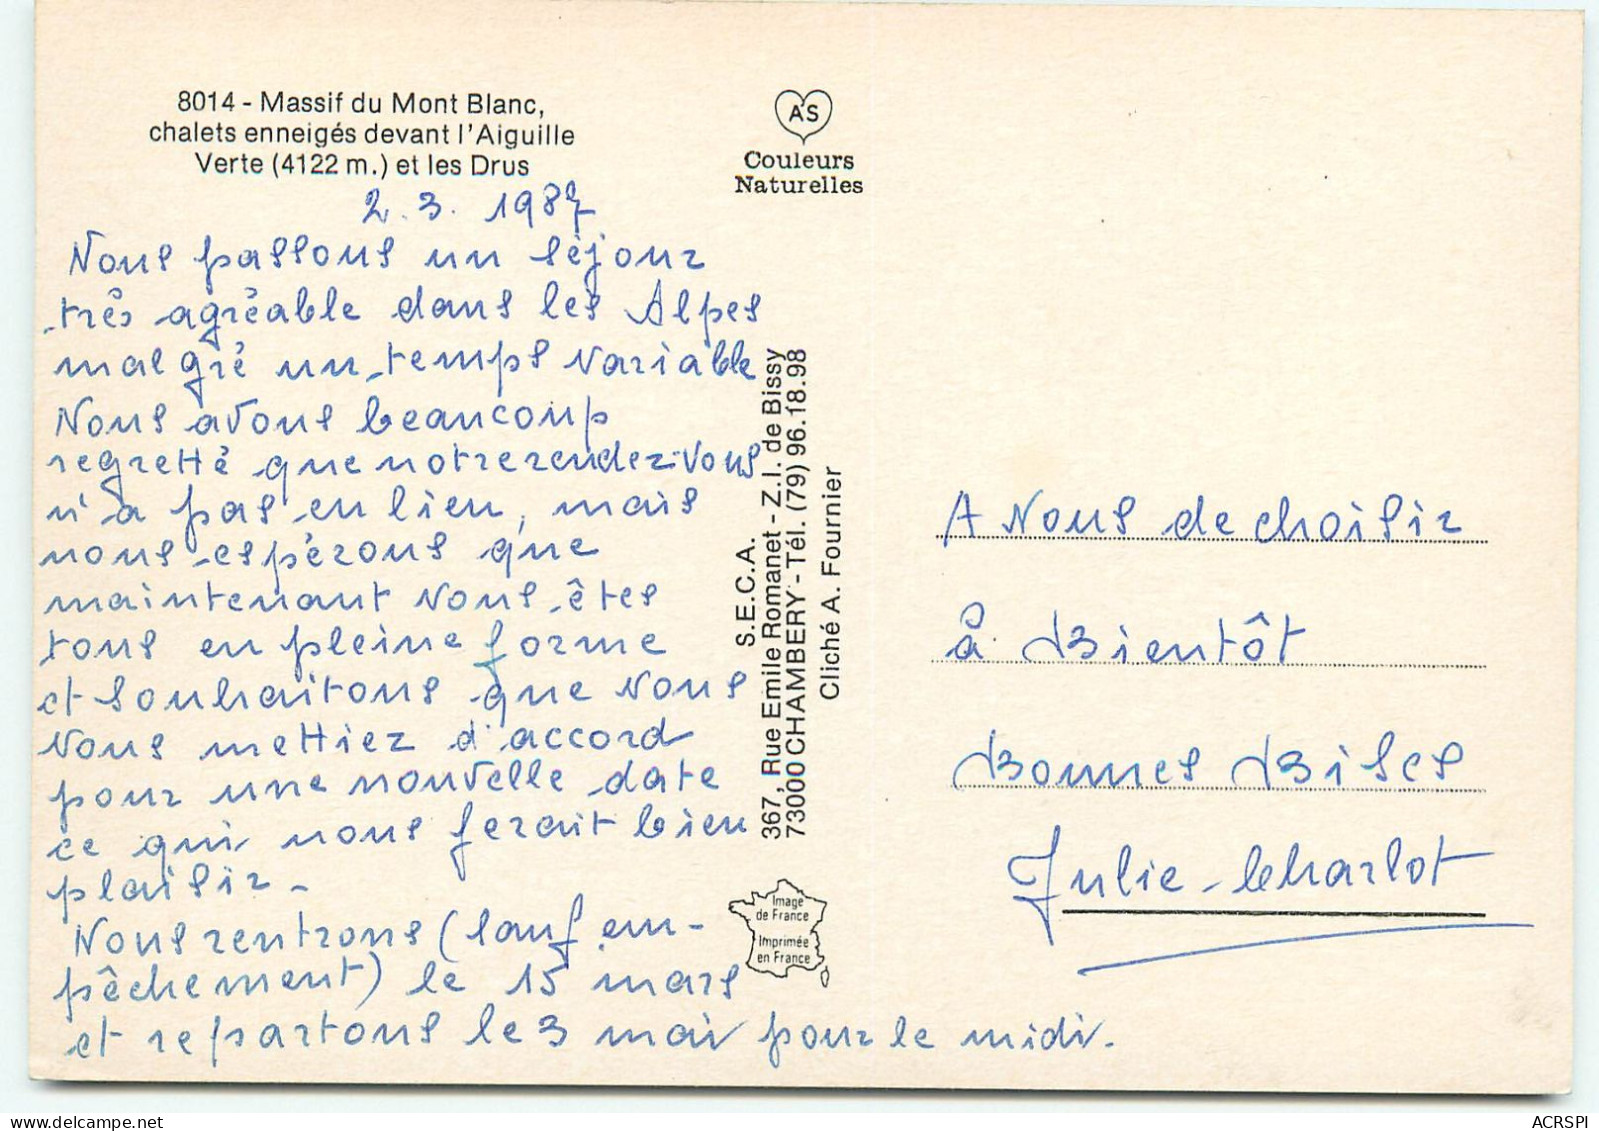 8014 - Massif du Mont Blanc,
chalets enneigés devant l'Aiguille
Verte (4122 m.) et les Drus
2. 3. 1987
Nous passons un séjour
très agréable dans les Alpes
malgré un temps variable
Nous avons beaucoup
regretté que notre rendez-vous
n'a pas eu lieu, mais
nous espérons que
maintenant vous êtes
tous en pleine forme
et souhaitons que vous
vous mettiez d'accord
pour une nouvelle date
ce qui nous ferait bien
plaisir -
Nous rentrons (sauf em-
pêchement) le 15 mars
et repartons le 3 mai pour le midi.
AS
Couleurs
Naturelles
S.E.C.A.
367, Rue Emile Romanet - Z.I. de Bissy
73000 CHAMBERY - Tél. (79) 96.18.98
Cliché A. Fournier
Image
de France
Imprimée
en France
A vous de choisir
à Bientôt
Bonnes Bises
Julie - Charlot
ACRSPI